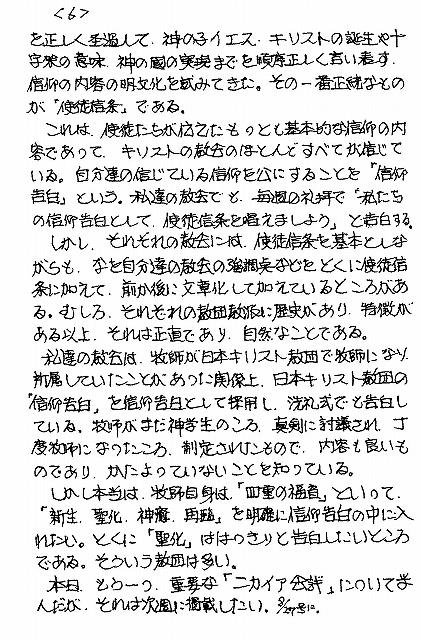 <6>
を正しく主過して、神の子イエス・キリストの誕生や十
字架の意味、神の国の実現までを順序正しく言い表す、
信仰の内容の明文化を試みてきた。その一番正統なもの
が「使徒信条」である。
これは、使徒たちが伝えたもっとも基本的な信仰の内
容であって、キリストの教会のほとんどすべてが信じて
いる。自分達の信じている信仰を公にすることを「信仰
告白」という。私達の教会でも、毎週の礼拝で「私たち
の信仰告白として、使徒信条を唱えましょう」と告白する。
しかし、それぞれの教会には、使徒信条を基本としな
がらも、なを自分達の教会の強調点などをとくに使徒信
条に加えて、前か後に文章化して加えているところがあ
る。むしろ、それぞれの教団教派に歴史があり、特徴が
ある以上、それは正直であり、自然なことである。
私達の教会は、牧師が日本キリスト教団で牧師になり、
所属していたことがあった関係上、日本キリスト教団の
「信仰告白」を信仰告白として採用し、洗礼式でも告白し
ている。牧師がまだ神学生のころ、真剣に討議され、丁
度牧師になったころ、制定されたもので、内容も良いも
のであり、かたよっていないことを知っている。
しかし本当は、牧師自身は、「四重の福音」といって、
「新生、聖化、神癒、再臨」を明確に信仰告白の中に入
れたい。とくに「聖化」ははっきりと告白したいところ
である。そういう教団は多い。
本日、もう一つ、重要な「ニカイア会議」について学
んだが、それは次週に掲載したい。